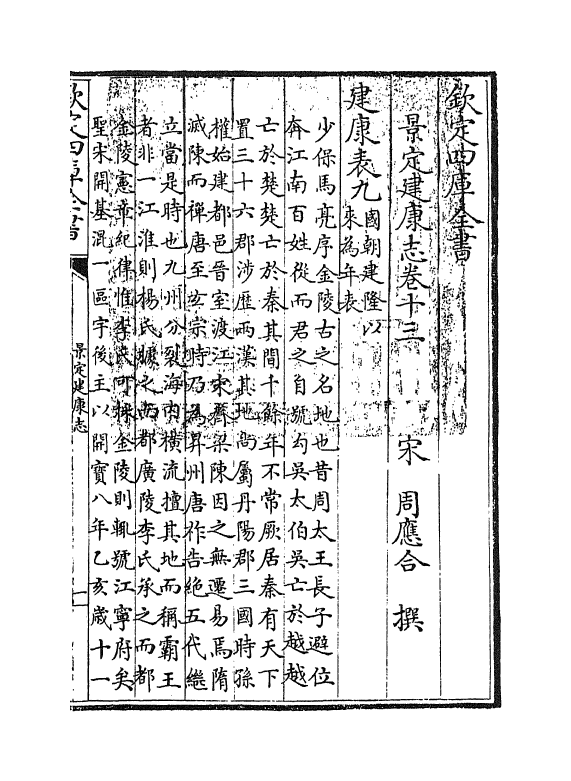 欽定四庫全書
景定建康志卷十三
宋 周應合 撰
建康表九國朝建隆以
來為年表
少保馬亮序金陵古之名地也昔周太王長子避位
奔江南百姓從而君之自號勾吳太伯吳亡於越越
亡於楚楚亡於秦其間千餘年不常厥居秦有天下
置三十六郡涉歷兩漢其地尚屬丹陽郡三國時孫
權始建都邑晉室渡江宋齊梁陳因之無遷易焉隋
滅陳而禪唐至玄宗時乃為昇州唐祚告絶五代繼
立當是時也九州分裂海内横流擅其地而稱霸王
者非一江淮則楊氏據之而都廣陵李氏承之而都
金陵憲章紀律惟李氏可採金陵則輒號江寧府矣
聖宋開基混一區宇後主以開寶八年乙亥歲十一
欽定四庫全書
景定建康志